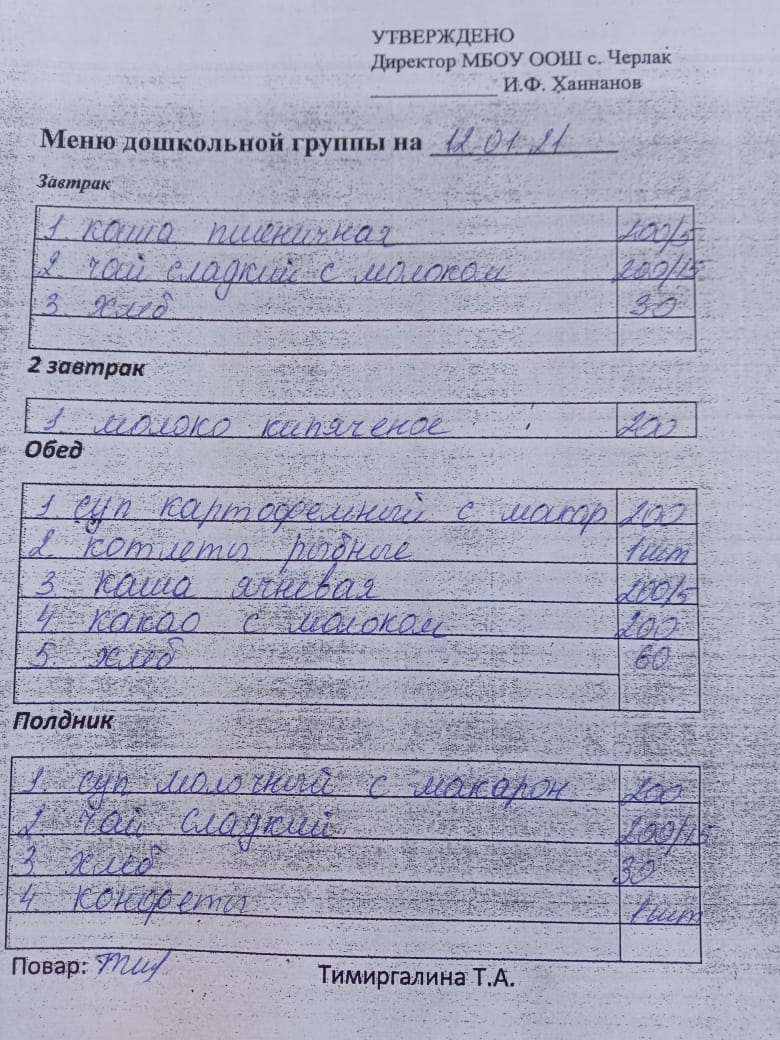 УТВЕРЖДЕНО
Директор МБОУ ООШ с. Черлак
____________ И.Ф. Ханнанов
Меню дошкольной группы на 12.01.21
Завтрак
1 каша пшеничная 200/5
2 чай сладкий с молоком 200/15
3. хлеб 30
2 завтрак
1. молоко кипяченое 200
Обед
1. суп картофельный с макар 200
2. котлеты рыбные 1 шт
3 каша ячневая 200/5
4 какао с молоком 200
5. хлеб 60
Полдник
1. суп молочный с макарон 200
2 чай сладкий 200/15
3 хлеб 30
4. конфеты 1 шт
Повар: Тимиргалина Т.А.